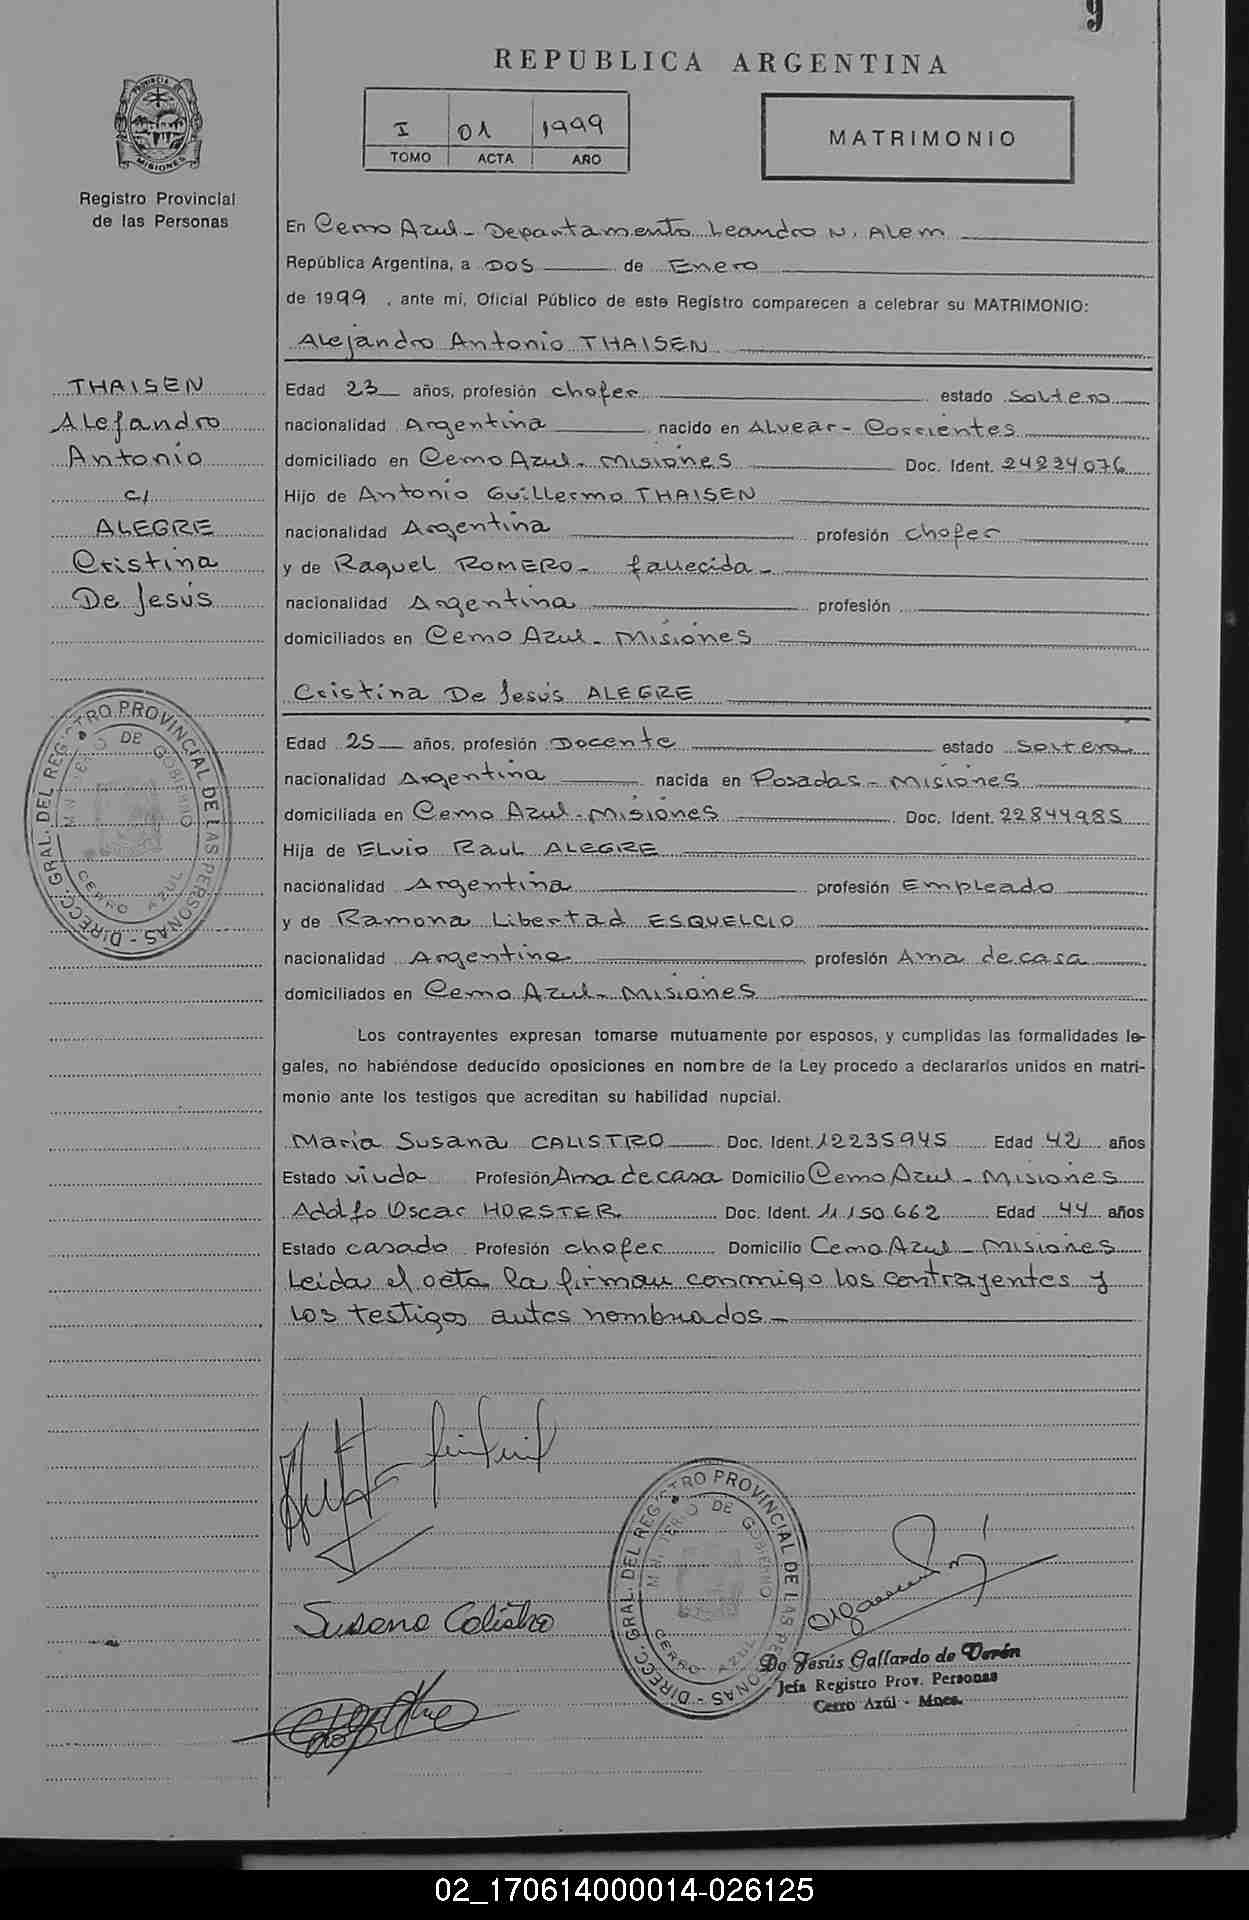 9
REPUBLICA ARGENTINA
I 01 1999
TOMO ACTA AÑO
MATRIMONIO
PROVINCIA DE
MISIONES
Registro Provincial
de las Personas
En Cerro Azul - Departamento Leandro N. Alem
República Argentina, a DOS de Enero
de 1999, ante mí, Oficial Público de este Registro comparecen a celebrar su MATRIMONIO:
Alejandro Antonio THAISEN
THAISEN
Alejandro
Antonio
c/
ALEGRE
Cristina
De Jesús
Edad 23 años, profesión chofer estado soltero
nacionalidad Argentina nacido en Alvear - Corrientes
domiciliado en Cerro Azul - Misiones Doc. Ident. 24234076
Hijo de Antonio Guillermo THAISEN
nacionalidad Argentina profesión chofer
y de Raquel ROMERO - fallecida -
nacionalidad Argentina profesión
domiciliados en Cerro Azul - Misiones
Cristina De Jesús ALEGRE
Edad 25 años, profesión Docente estado soltera
nacionalidad Argentina nacida en Posadas - Misiones
domiciliada en Cerro Azul - Misiones Doc. Ident. 22844985
Hija de Elvio Raul ALEGRE
nacionalidad Argentina profesión Empleado
y de Ramona Libertad ESQUELCIO
nacionalidad Argentina profesión Ama de casa
domiciliados en Cerro Azul - Misiones
DIREC. GRAL. DEL REGISTRO PROVINCIAL DE LAS PERSONAS
MINISTERIO DE GOBIERNO
CERRO AZUL
Los contrayentes expresan tomarse mutuamente por esposos, y cumplidas las formalidades le-
gales, no habiéndose deducido oposiciones en nombre de la Ley procedo a declararlos unidos en matri-
monio ante los testigos que acreditan su habilidad nupcial.
María Susana CALISTRO Doc. Ident. 12235945 Edad 42 años
Estado viuda Profesión Ama de casa Domicilio Cerro Azul - Misiones
Adolfo Oscar HORSTER Doc. Ident. 11.150.662 Edad 44 años
Estado casado Profesión chofer Domicilio Cerro Azul - Misiones
Leida el acta la firman conmigo los contrayentes y
los testigos antes nombrados -
DIREC. GRAL. DEL REGISTRO PROVINCIAL DE LAS PERSONAS
MINISTERIO DE GOBIERNO
CERRO AZUL
Susana Calistro
De Jesús Gallardo de Verón
Jefa Registro Prov. Personas
Cerro Azúl - Mnes.
02_170614000014-026125